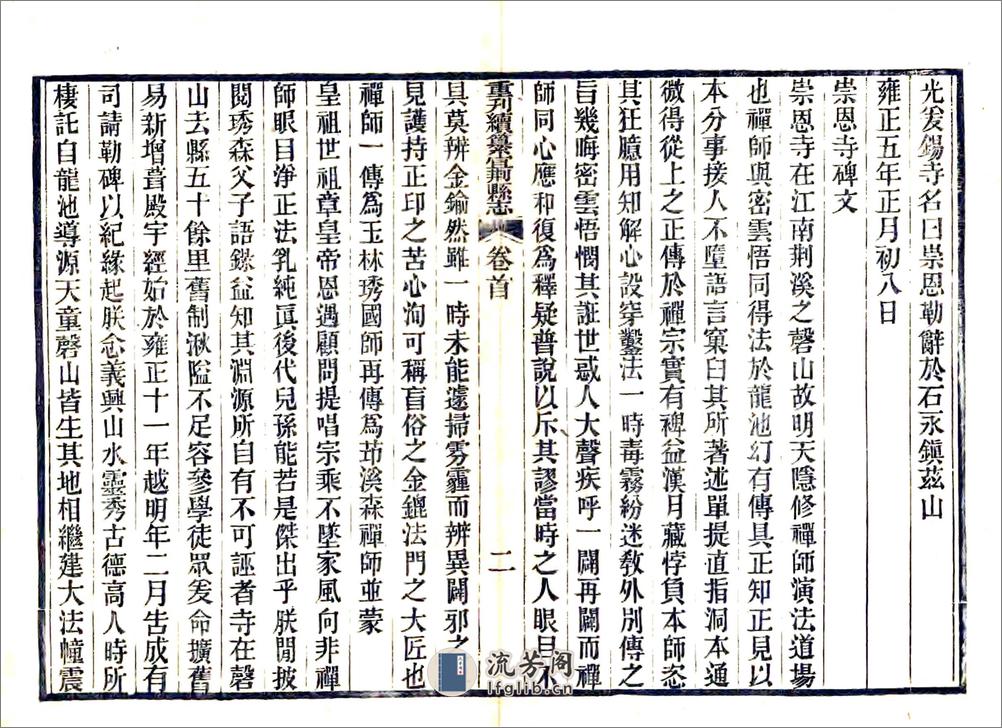 光爰錫寺名曰崇恩勒辭於石永鎭茲山
雍正五年正月初八日
崇恩寺碑文
崇恩寺在江南荆溪之磬山故明天隱修禪師演法道場
也禪師與密雲悟同得法於龍池幻有傳具正知正見以
本分事接人不墮語言窠臼其所著述單提直指洞本通
微得從上之正傳於禪宗實有裨益漢月藏悖負本師恣
其狂臆用知解心設穿鑿法一時毒霧紛迷敎外別傳之
旨幾晦密雲悟憫其誑世惑人大聲疾呼一闢再闢而禪
師同心應和復爲釋疑普說以斥其謬當時之人眼目不
重刊續纂宜荆縣志
卷首
二
具莫辨金鍮然雖一時未能遽掃雰霾而辨異闢邪之
見護持正印之苦心洵可稱盲俗之金鎞法門之大匠也
禪師一傳爲玉林琇國師再傳爲茆溪森禪師並蒙
皇祖世祖章皇帝恩遇顧問提唱宗乘不墜家風向非禪
師眼目淨正法乳純眞後代兒孫能若是傑出乎朕閒披
閱琇森父子語錄益知其淵源所自有不可誣者寺在磬
山去縣五十餘里舊制湫隘不足容參學徒眾爰命擴舊
易新增葺殿宇經始於雍正十一年越明年二月告成有
司請勒碑以紀緣起朕念義興山水靈秀古德高人時所
棲託自龍池導源天童磬山皆生其地相繼建大法幢震
流芳閣
lfglib.cn